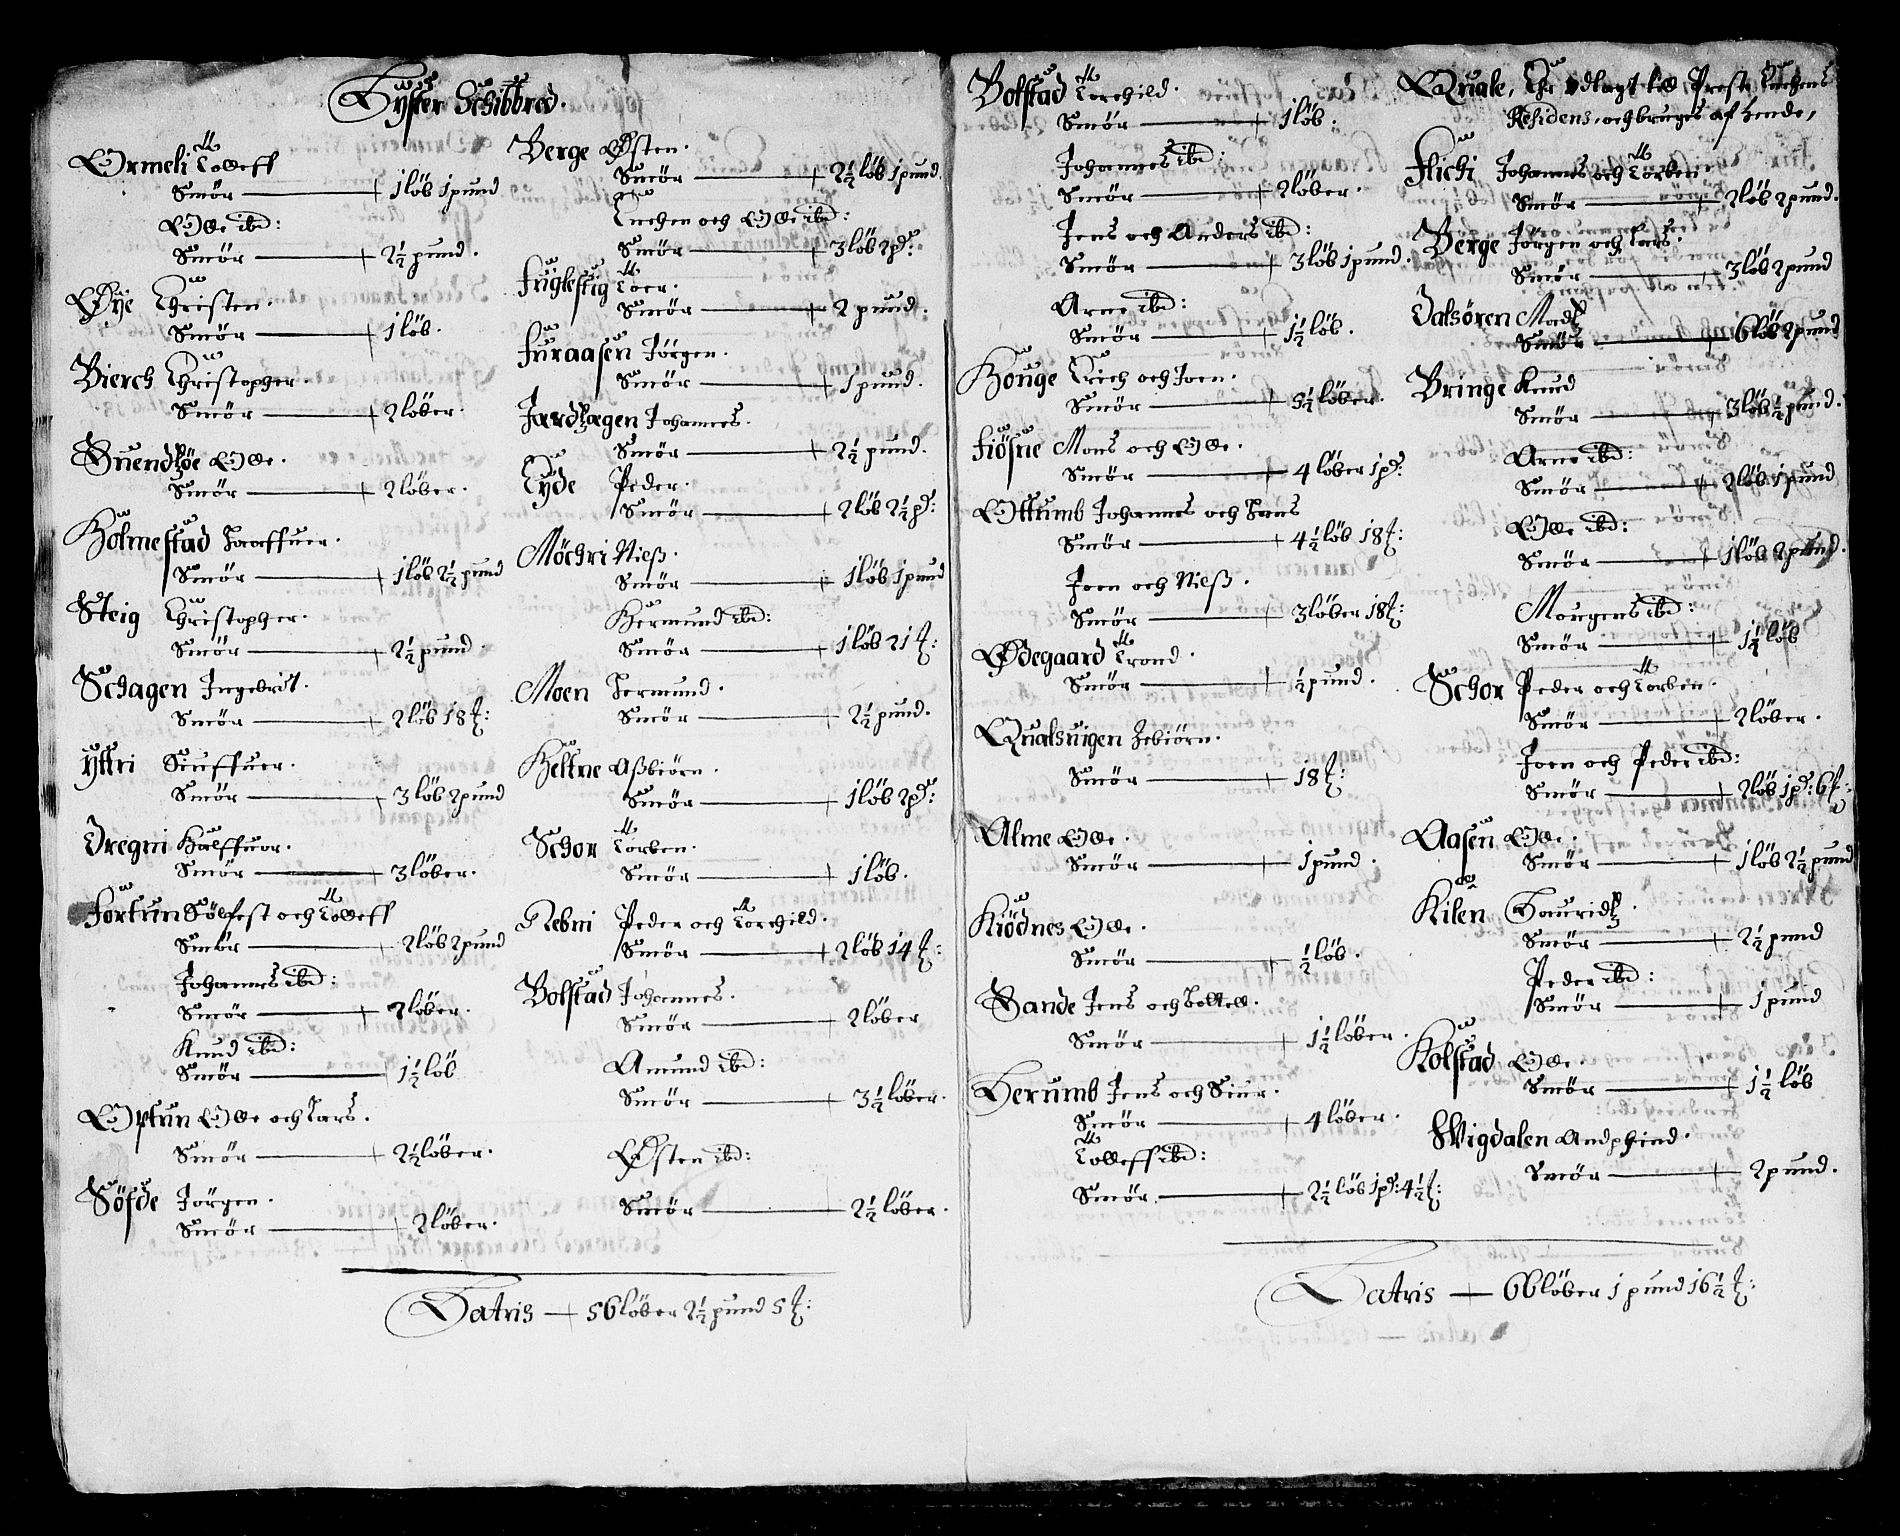 Lyster Schibbred.
Ormeli Tolleff
Smör — 1 löb 1 pund
Olle ibd:
Smör — 2½ pund.
Øÿe Christen.
Smör — 1 löb.
Bierch Christopher.
Smör — 2 löber.
Suendßöe Olle.
Smör — 2 löber.
Holmestad Haaffuer.
Smör — 1 löb 2½ pund
Steig Christopher.
Smör — 2½ pund.
Schagen Ingebrit.
Smör — 2 löb 18 ℔:
ÿttri Siuffuer.
Smör — 3 löb 2 pund
Dregni Halffuor.
Smör — 3 löber.
Fortun Sölfest och Tolleff
Smör — 2 löb 2 pund
Johannes ibd:
Smör — 2 löber.
Knud ibd:
Smör — 1½ löb
Optun Olle och Lars.
Smör — 2½ löber.
Söfde Jörgen.
Smör — 2 löber.
Berge Østen.
Smör — 2½ löb 1 pund.
Enchen och Olle ibd:
Smör — 3 löb 2 pd:
Fuglestig Toer.
Smör — 2 pund.
Furaasen Jörgen.
Smör — 1 pund.
Jardßagen Johannes.
Smör — 2½ pund.
Eyde Peder.
Smör — 2 löb 2½ pd:
Möchri Nielß.
Smör — 1 löb 1 pund
Hermund ibd:
Smör — 1 löb 21 ℔:
Moen Hermund.
Smör — 2½ pund.
Heltne Aßbiörn.
Smör — 1 löb 2 pd:
Schor Torben.
Smör — 1 löb.
Nebni Peder och Torchild.
Smör — 2 löb 14 ℔:
Bolstad Johannes.
Smör — 2 löber
Amund ibd:
Smör — 3½ löber.
Østen ibd:
Smör — 2½ löber.
Latris — 56 löber 2½ pund 5 ℔:
Bolstad Torchild.
Smör — 1 löb.
Johannes ibd:
Smör — 2 löber.
Jens och Anders ibd:
Smör — 3 löb 1 pund.
Arne ibd:
Smör — 1½ löb.
Houge Erich och Joen.
Smör — 5½ löber.
Fiösne Mons och Olle.
Smör — 4 löber 1 pd:
Ottumb Johannes och Hans
Smör — 4½ löb 18 ℔:
Joen och Nielß.
Smör — 3 löber 18 ℔:
Ødegaard Trond.
Smör — ½ pund.
Qualsuigen Isbiörn.
Smör — 18 ℔:
Alme Olle.
Smör — 1 pund.
Kiödnes Olle.
Smör — ½ löb.
Sande Jens och
Smör — 1½ löber.
Herumb Jens och Siur.
Smör — 4 löber.
Tolleff ibd:
Smör. — 2½ löb 1 pd: 4½ ℔:
Quale, Ehr udlagt till Preste Enchens
Residens, och bruges af hende,
Flichi Johannes och Torben
Smör — 2 löb 2 pund.
Berge Jörgen och Lars.
Smör — 3 löb 2 pund
Dalsören Madß
Smör — 6 löb 2 pund
Bringe Knud
Smör — 3 löb ½ pund.
Arne ibd:
Smör — 2 löb 1 pund
Olle ibd:
Smör — 1 löb 2 pund.
Mougens ibd:
Smör — 1½ löb
Schor Peder och Torben.
Smör — 2 löber.
Joen och Peder ibd:
Smör — 2 löb 1 pd: 6 ℔:
Aasen Olle.
Smör — 1 löb 2½ pund
Kilen Lauridß.
Smör — 2½ pund
Peder ibd:
Smör — 1 pund
Kolstad Olle
Smör — 1½ löb
Wigdalen Andphind.
Smör — 2 pund.
Latris — 66 löber 1 pund 16½ ℔: